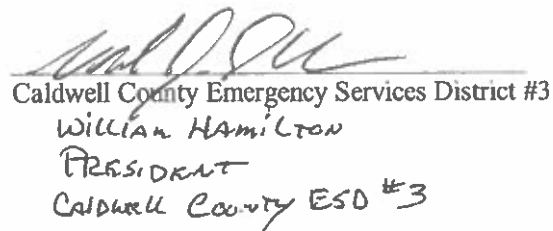 Caldwell County Emergency Services District #3
William Hamilton
President
Caldwell County ESD #3